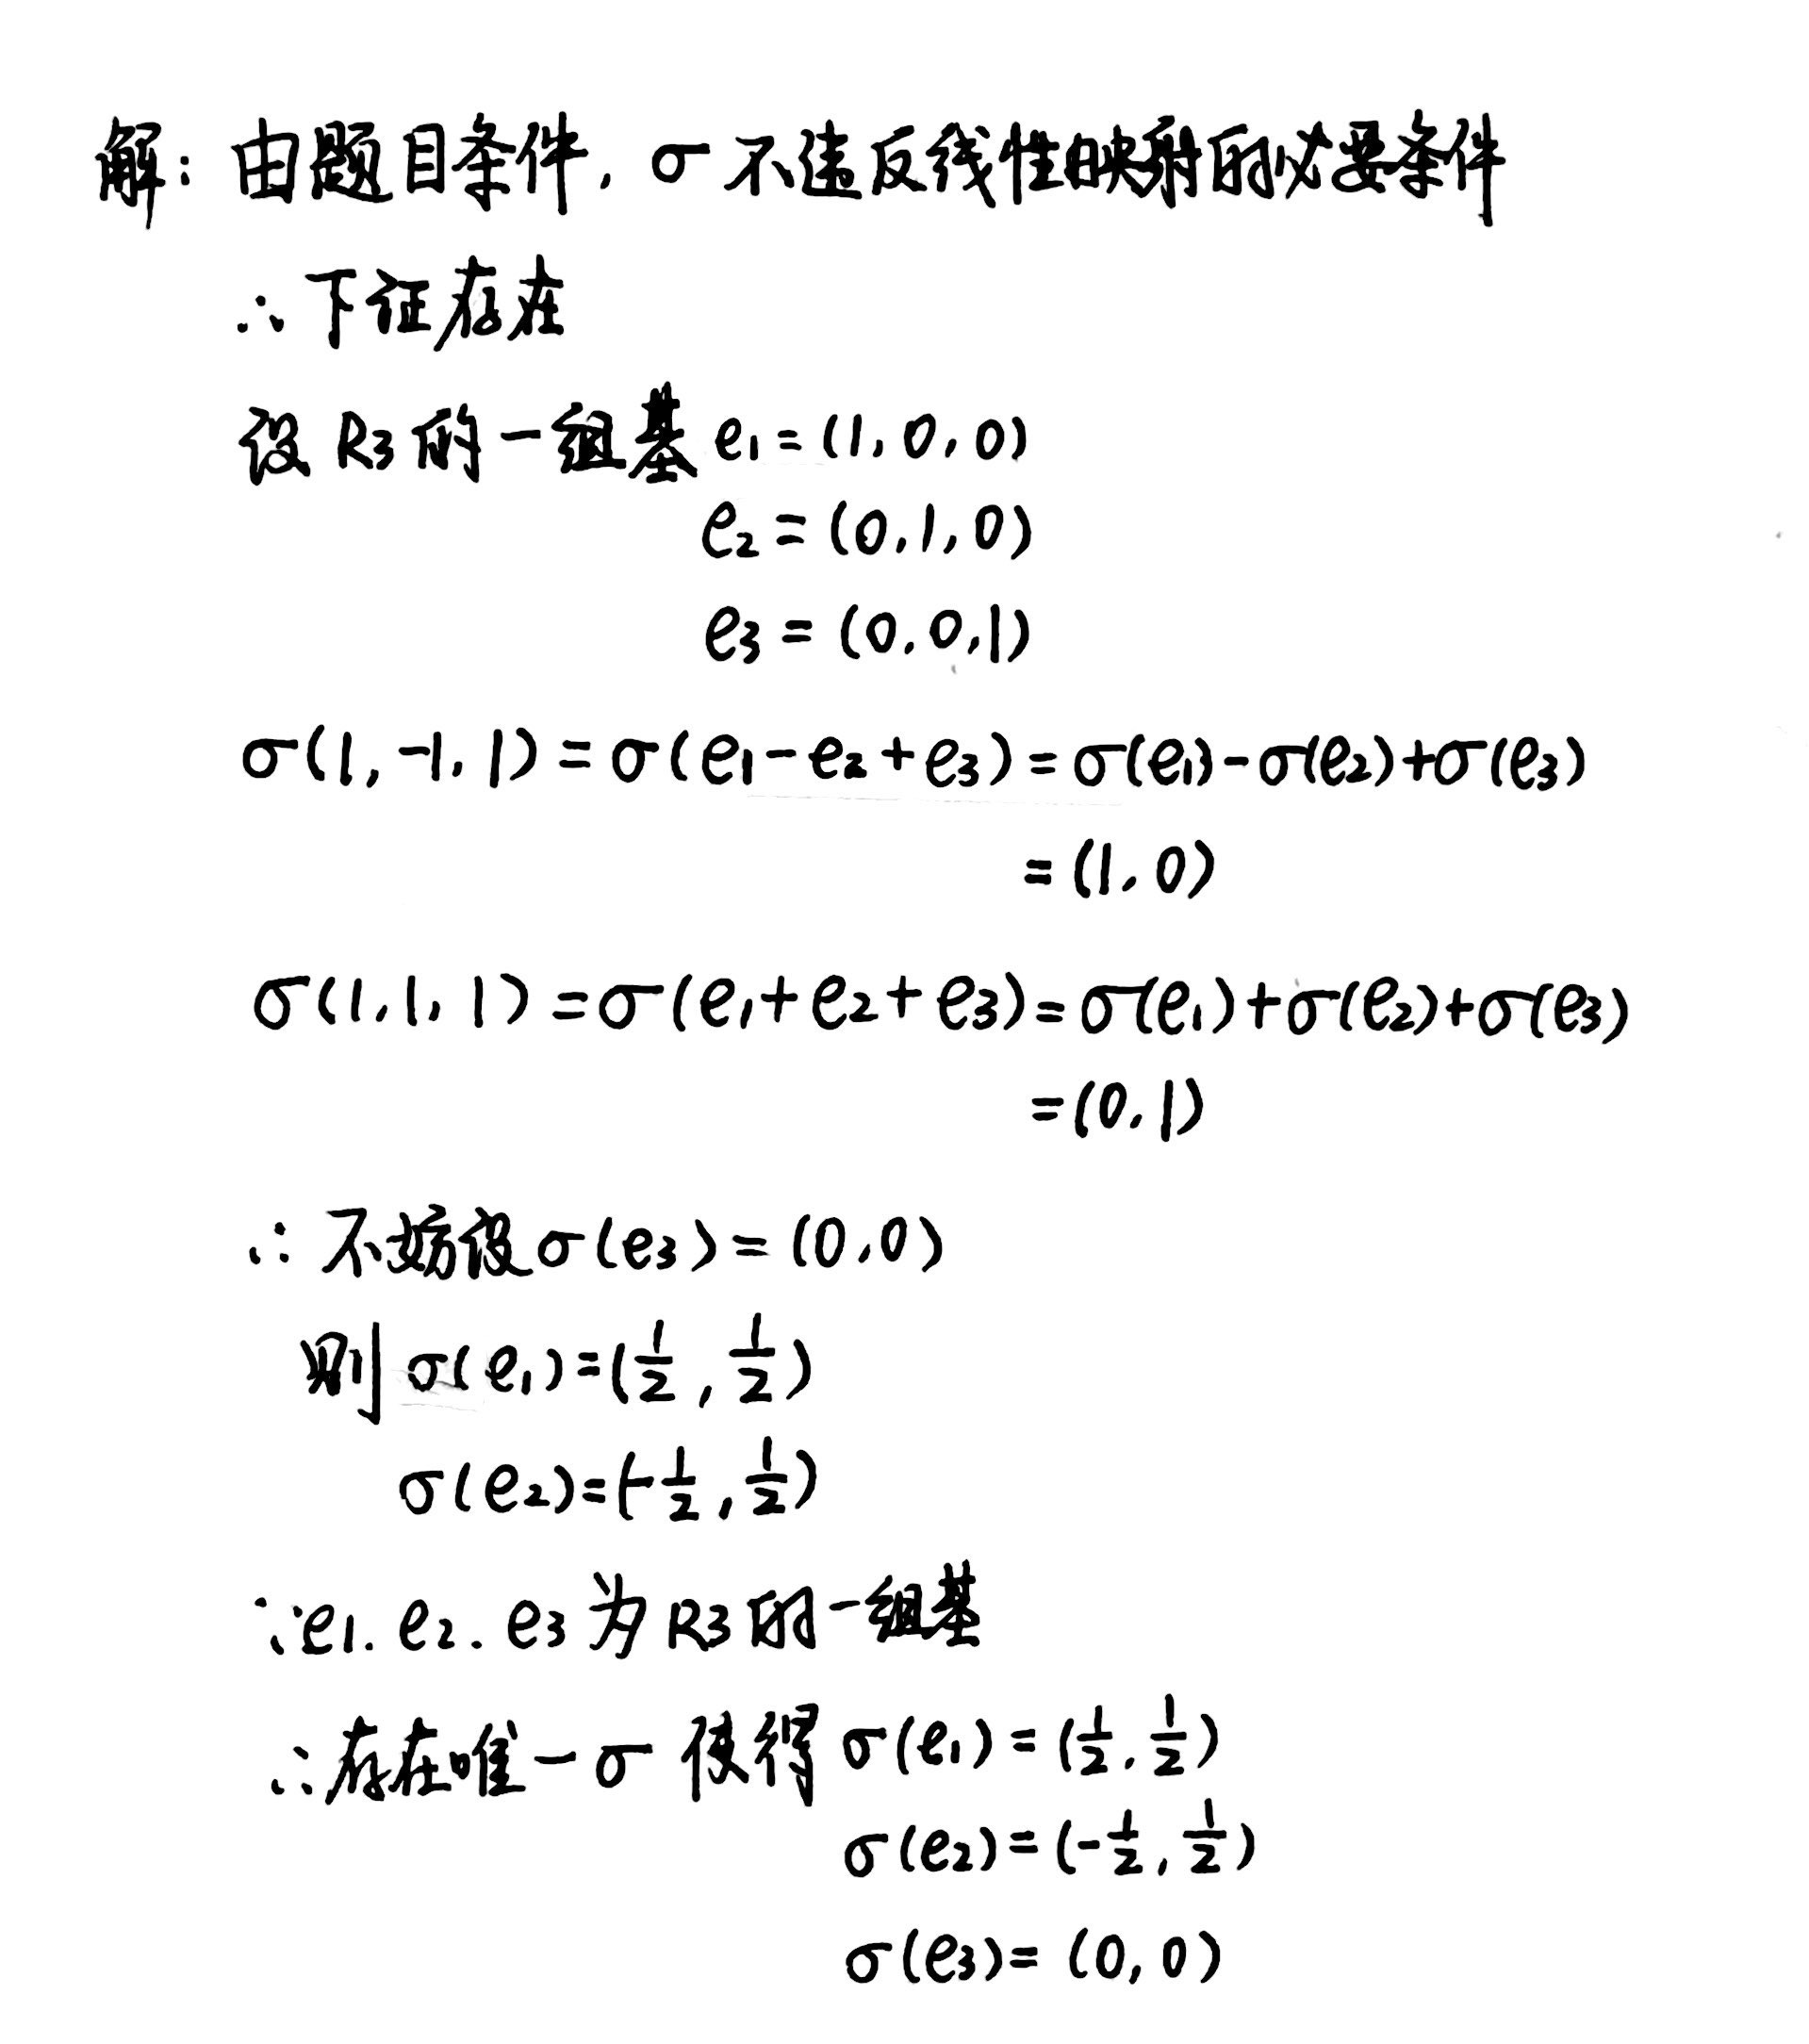 解：由题目条件，σ 不违反线性映射的必要条件
∴ 下证存在
设 R3 的一组基 e1=(1,0,0)
e2=(0,1,0)
e3=(0,0,1)
σ(1,-1,1)=σ(e1-e2+e3)=σ(e1)-σ(e2)+σ(e3)
=(1,0)
σ(1,1,1)=σ(e1+e2+e3)=σ(e1)+σ(e2)+σ(e3)
=(0,1)
∴ 不妨设σ(e3)=(0,0)
则 σ(e1)=(1/2,1/2)
σ(e2)=(-1/2,1/2)
∵e1.e2.e3为R3的一组基
∴存在唯一σ 使得 σ(e1)=(1/2,1/2)
σ(e2)=(-1/2,1/2)
σ(e3)=(0,0)